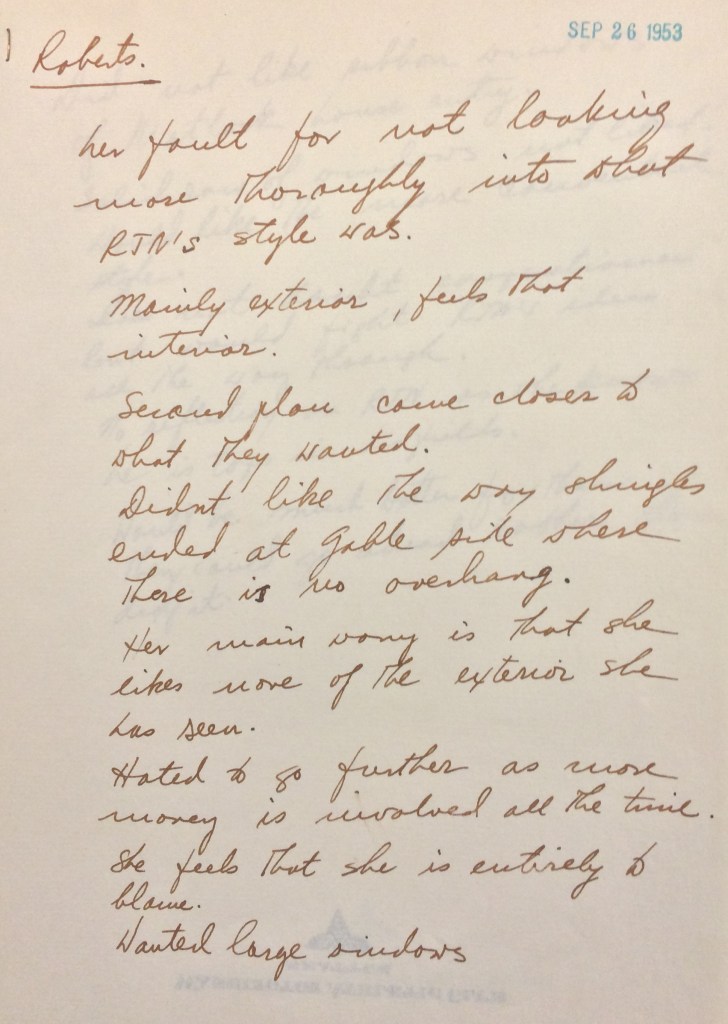 SEP 26 1953
Roberts.
her fault for not looking
more thoroughly into what
RJN's style was.
Mainly exterior, feels that
interior.
Second plan came closer to
what they wanted.
Didnt like the way shingles
ended at gable side where
there is no overhang.
Her main worry is that she
likes none of the exterior she
has seen.
Hated to go further as more
money is involved all the time.
She feels that she is entirely to
blame.
Wanted large windows